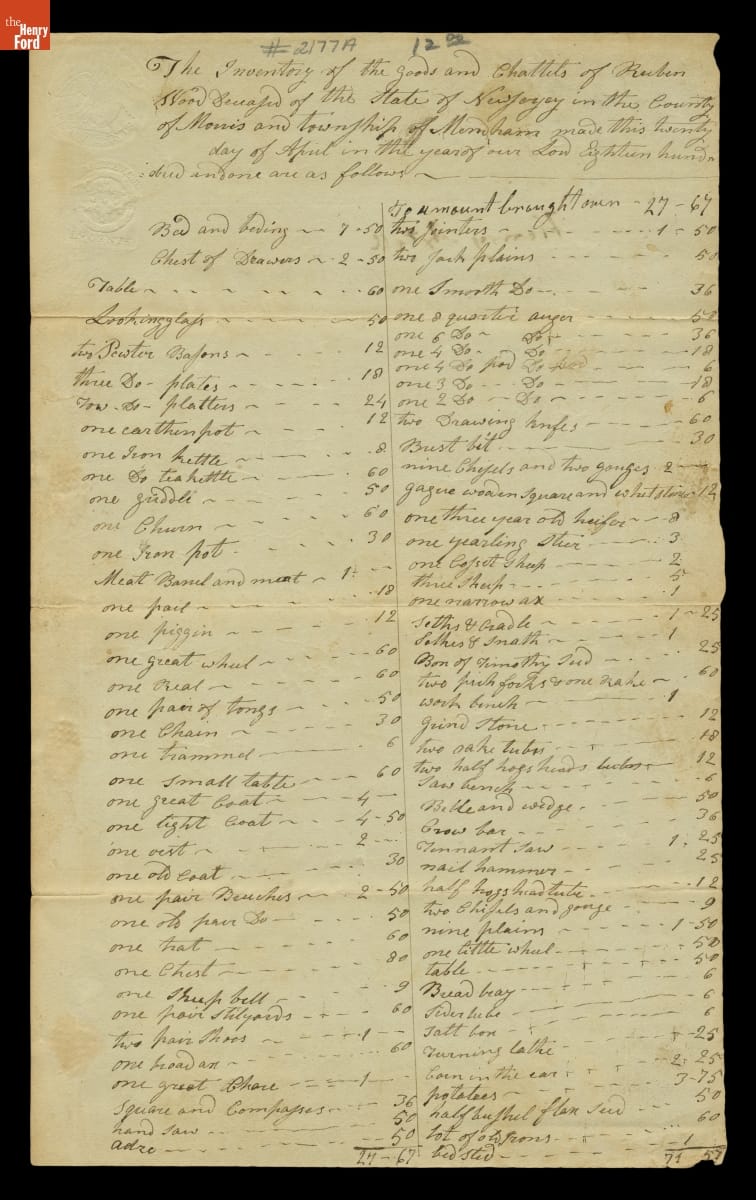 the
Henry
Ford
# 2177A 12 00
The Inventory of the goods and Chattels of Ruben
Wood Deceased of the State of New Jersey in the County
of Morris and township of Mendham made this twenty
day of April in the year of our Lord Eighteen hund
dred and one are as follows
Bed and beding 7-50
Chest of Drawers 2-50
Table 60
Lookingglass 50
two Pewter Basons 12
three Do plates 18
Tow Do platters 24
one earthen pot 12
one Iron kettle 8
one Do teakettle 60
one griddle 50
one Churn 60
one Iron pot 30
Meat Barrel and meat 1
one pail 18
one piggin 12
one great wheel 60
one Real 60
one pair of tongs 50
one Chain 30
one trammel 6
one small table 60
one great Coat 4
one light Coat 4-50
one vest 2
one old Coat 30
one pair Breeches 2-50
one old pair Do 50
one hat 60
one Chest 80
one Sheep bell 9
one pair Stilyards 60
two pair Shoos 1
one broad ax 60
one great Chare 1
Square and Compasses 36
hand saw 50
adze 50
27-67
To amount brought over 27-67
two Jointers 1-50
two Jack plains 50
one Smooth Do 36
one 8 quarter auger 50
one 6 Do Do 36
one 4 Do Do 18
one 4 Do pod Do 6
one 3 Do Do 18
one 2 Do Do 6
two Drawing knifes 60
Brest bit 30
nine Chisels and two gouges 2
gague wooden Square and whetstone 12
one three year old heifer 8
one yearling Stier 3
one Cosset Sheep 2
three Sheep 5
one narrow ax 1
Sethe & Cradle 1-25
Sethes & Snath 1
Bon of Timothy Seed 25
two pitch forks & one rake 60
work bench 1
grind Stone 12
two sake tubs 18
two half hogsheads tubs 12
Saw bench 6
Bettle and wedge 50
Crow bar 36
Tennant Saw 1.25
nail hammer 25
half hogshead tube 12
two Chisels and gouge 9
nine plains 1-50
one little wheel 50
table 50
Bread tray 6
Sider tube 6
Salt box 6
Turning lathe 25
Corn in the ear 2-25
potatoes 3-75
half bushel flax Seed 50
lot of old Irons 60
bedsted 1
71 57